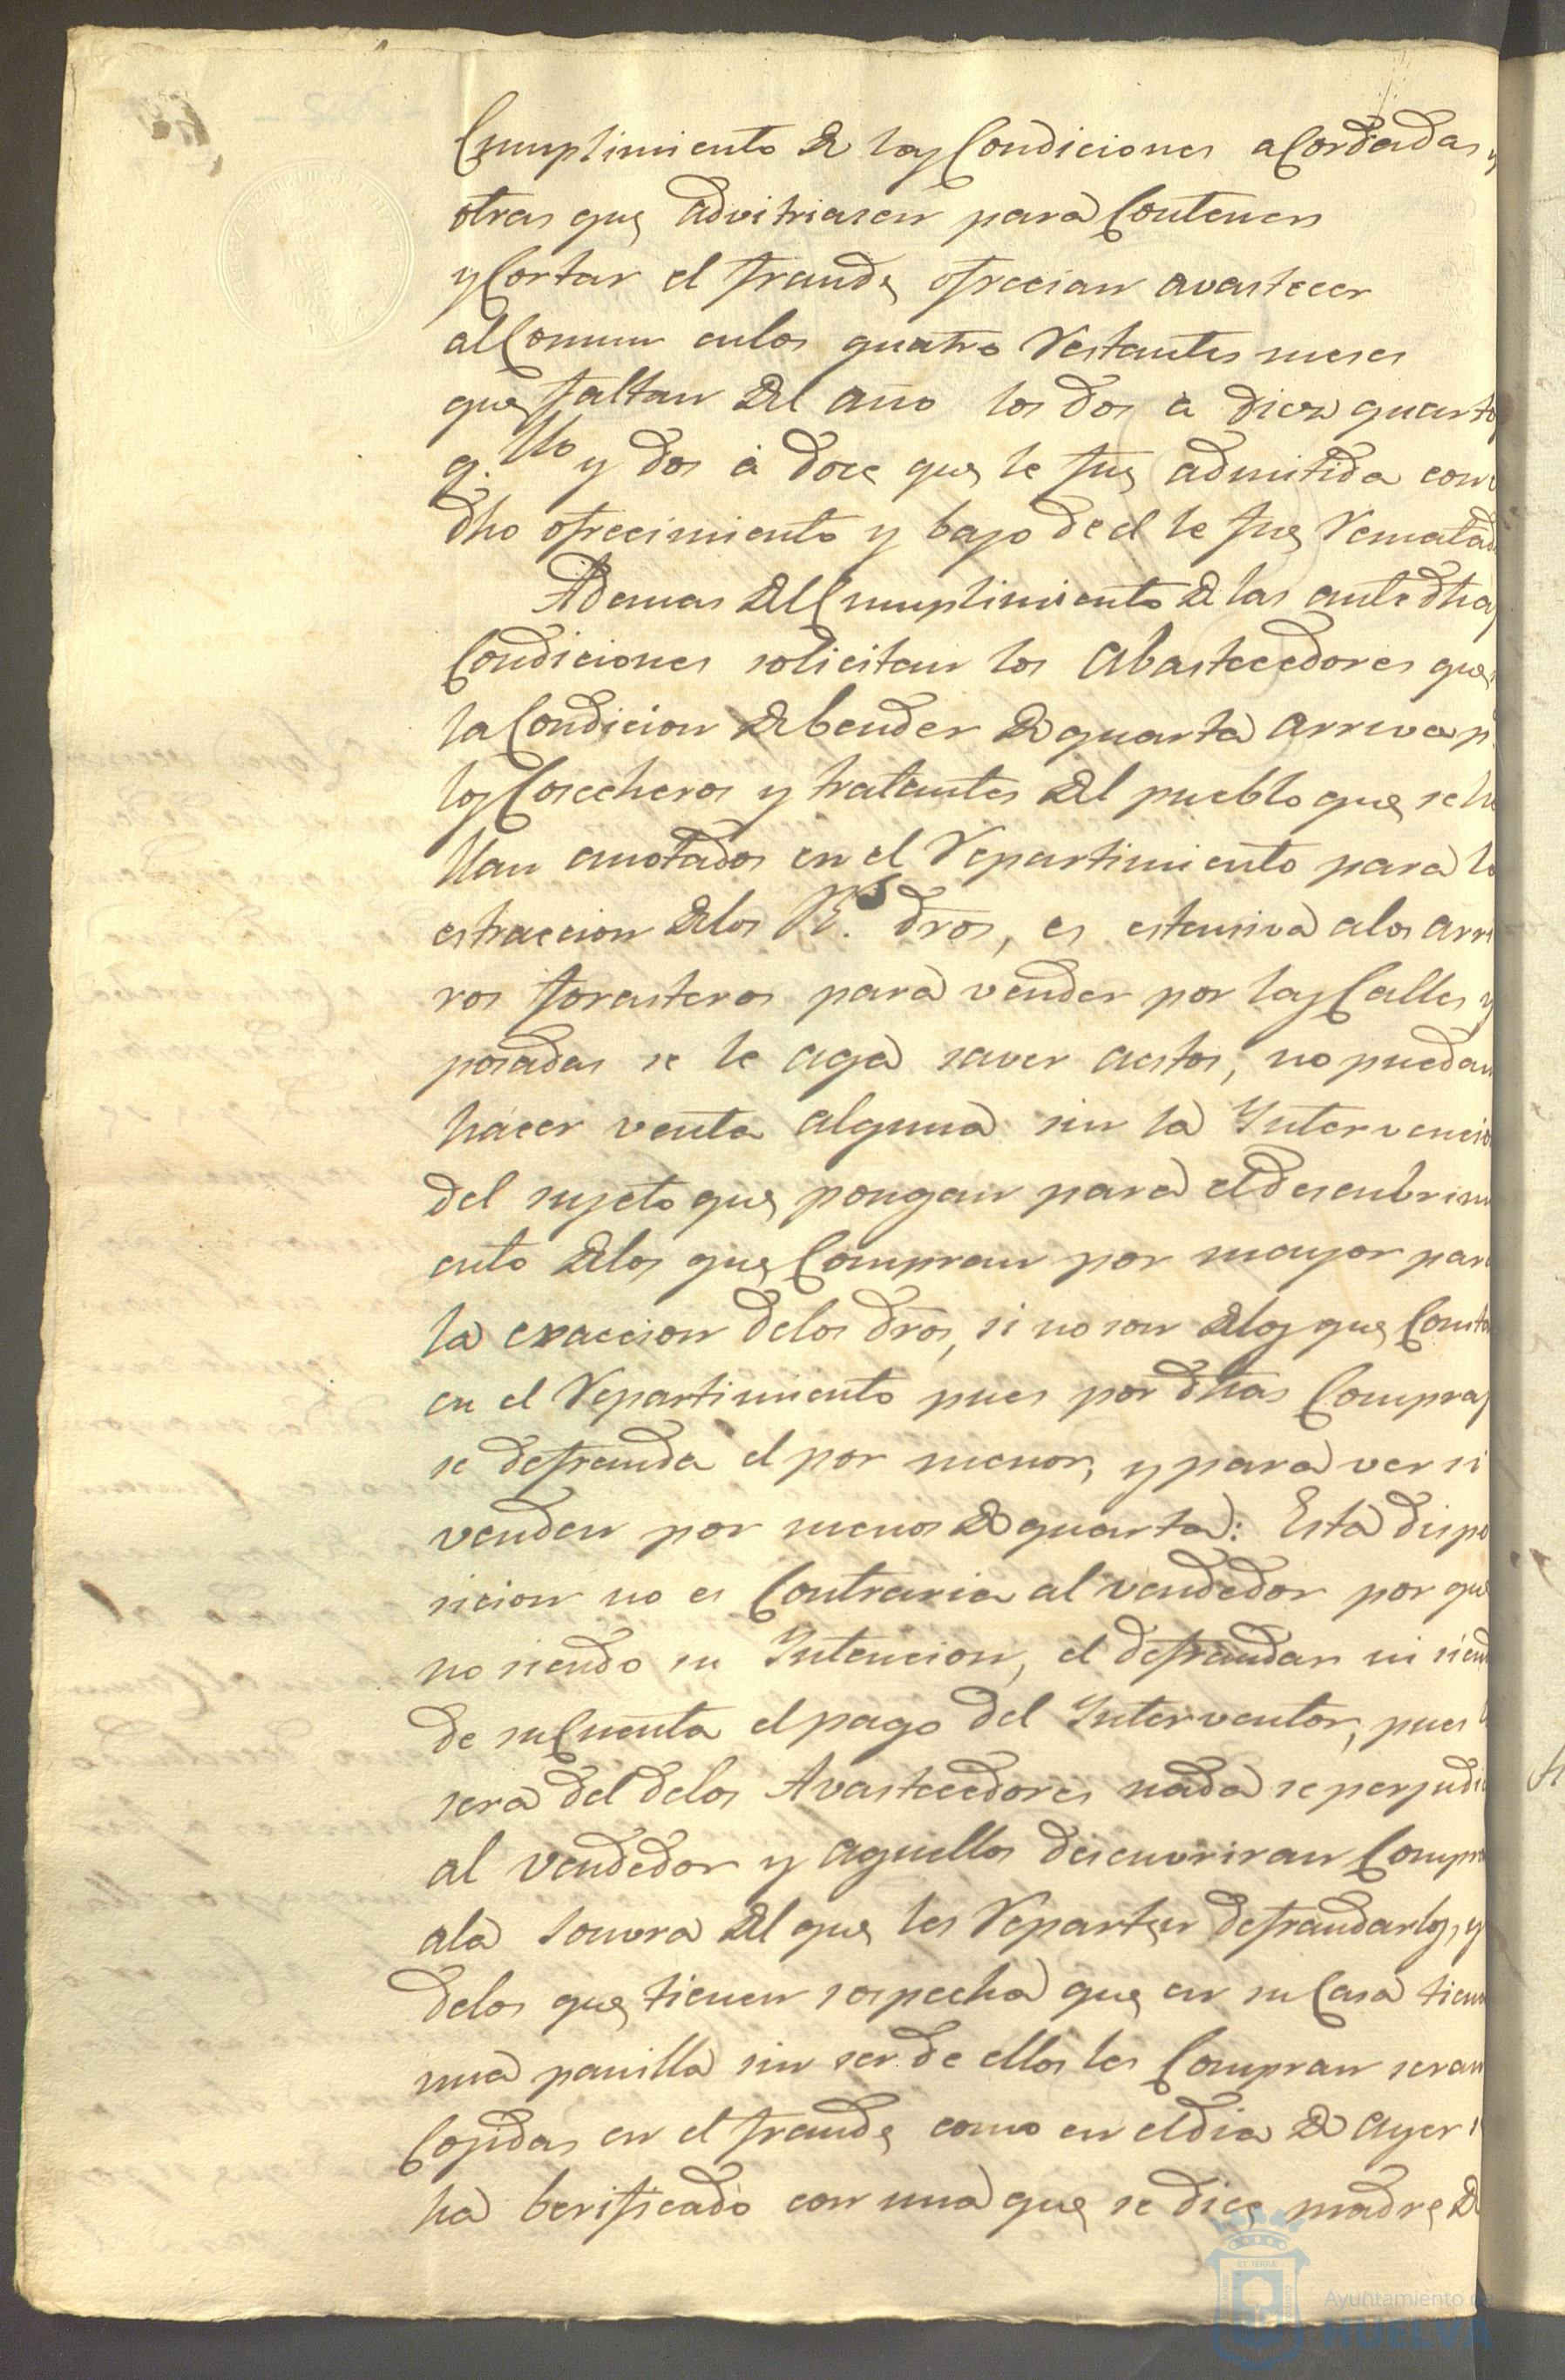 Cumplimiento de las Condiciones acordadas y
otras que advitriasen para Contener
y Cortar el fraude ofrecian avastecer
al Comun en los quatro restantes meses
que faltan del año los dos a diez quartos
q.llo y dos á doce que le fue admitida con
dho ofrecimiento y bajo de el le fue rematad
Ademas del Cumplimiento de las antedhas
Condiciones solicitan los Abastecedores que
la Condicion de bender de quarta arriva p.
los Cosecheros y tratantes del pueblo que se ha
llan anotados en el repartimiento para la
estraccion de los R.s dros, es estensiva a los arri
ros forasteros para vender por las Calles y
posadas se le aga saver a estos, no puedan
hacer venta alguna sin la Intervencio
del sujeto que pongan para el descubrimi
ento de los que Compran por mayor para
la exaccion de los dros, si no son de los que Consta
en el repartimiento pues por dhas Compras
se defrauda el por menor, y para ver si
venden por menos de quarta: Esta dispo
sicion no es Contraria al vendedor por que
no siendo su Intencion, el defraudar ni siend
de su Cuenta el pago del Interventor, pues
sera del de los Avastecedores nada se perjudic
al vendedor y aquellos descuvriran Compra
a la sonvra del que les reparten defraudarlos, y
de los que tienen sospecha que en su Casa tienen
una panilla sin ser de ellos les Compran seran
Cojidas en el fraude como en el dia de ayer
ha berificado con una que se dice madre de
Ayuntamiento de
HUELVA